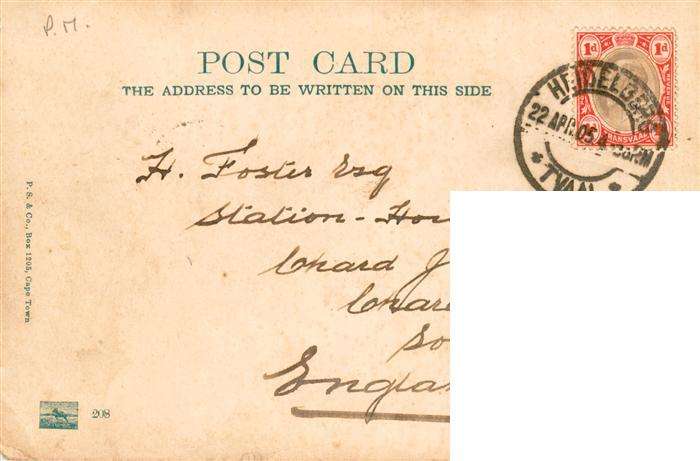 P. M.
POST CARD
THE ADDRESS TO BE WRITTEN ON THIS SIDE
1d 1d
TRANSVAAL
HEIDELBERG
22 APR 05
TVAAL
H. Foster Esq
Station-Hou
Chard J
Char
So
Engla
P. S. & Co., Box 1205, Cape Town
208